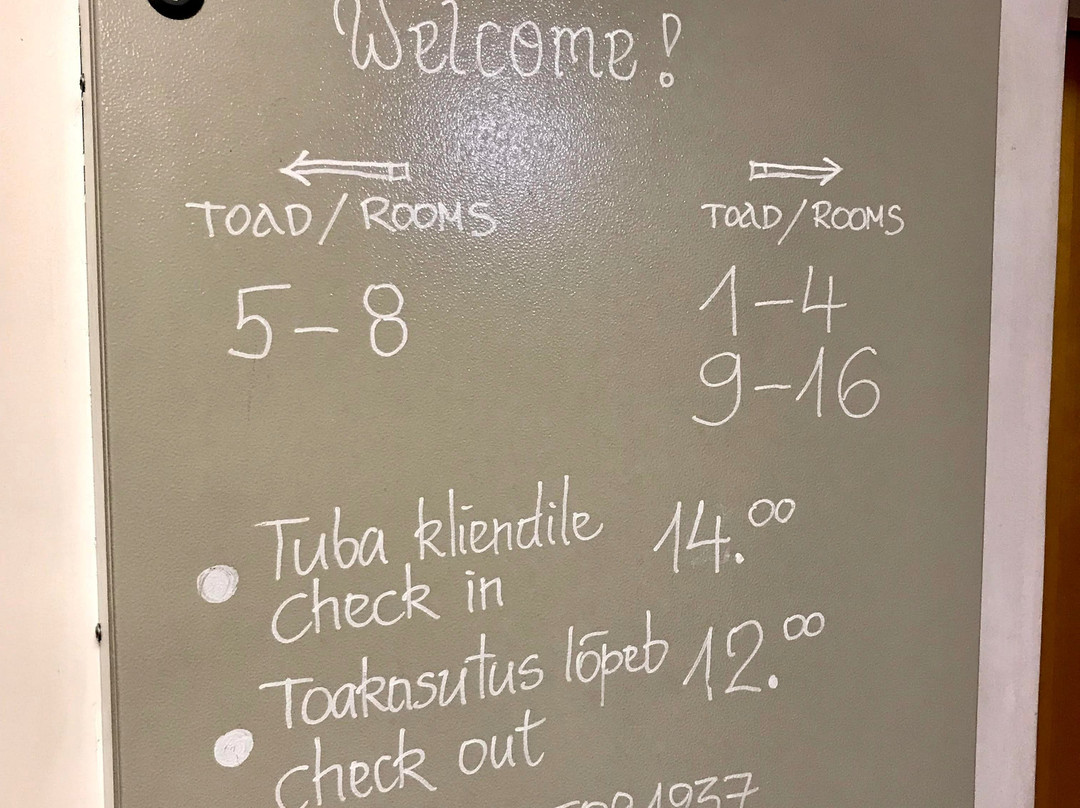 Welcome!
TOAD/ROOMS
5-8
TOAD/ROOMS
1-4
9-16
Tuba kliendile 14.00
check in
Toakasutus lõpeb 12.00
check out
1937